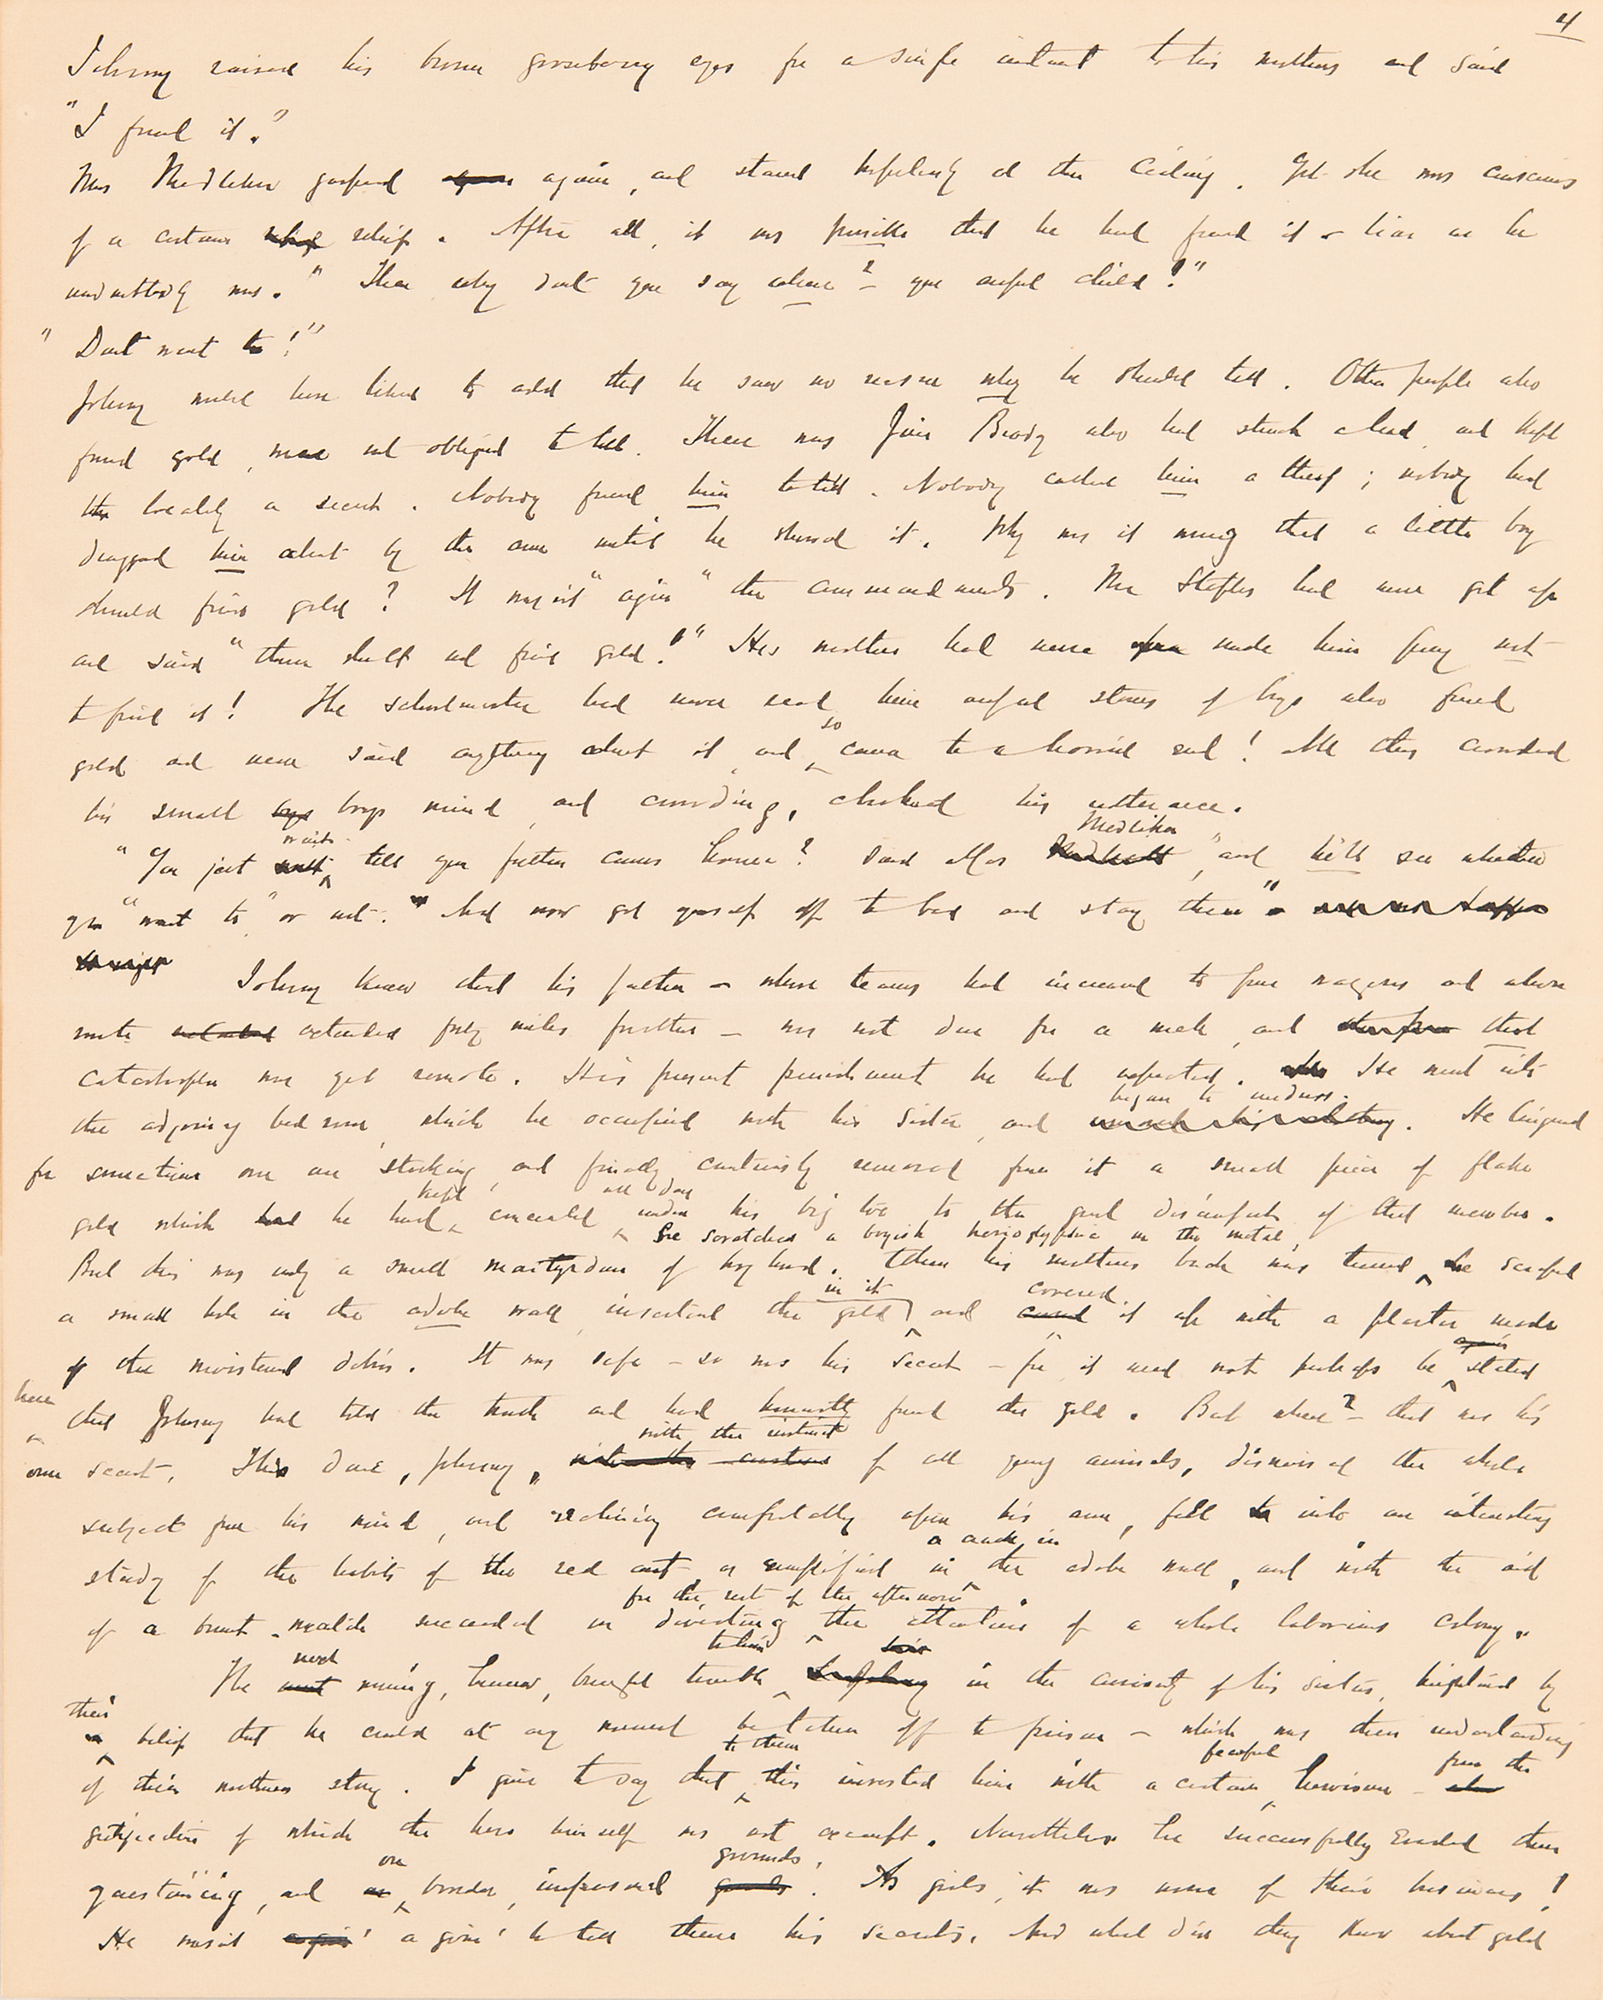 4
Johnny raised his brown gooseberry eyes for a single instant to his mothers and said
"I found it."
Mrs Medliker gasped again, and stared hopelessly at the ceiling. Yet she was conscious
of a certain relief. After all, it was possible that he had found it – liar as he
undoubtedly was. "Then why don't you say where? – you awful child!"
"Don't want to!"
Johnny would have liked to add that he saw no reason why he should tell. Other people who
found gold, were not obliged to tell. There was Jim Brody who had struck a lead and kept
the locality a secret. Nobody forced him to tell. Nobody called him a thief; nobody had
dragged him about by the arm until he showed it. Why was it wrong that a little boy
should find gold? It wasn't "agin" the commandments. Mr Staples had never got up
and said "thou shalt not find gold!" His mother had never made him pray not
to find it! The schoolmaster had never read him awful stories of boys who found
gold and never said anything about it, and so came to a horrid end! All this crowded
his small boys mind, and crowding, choked his utterance.
"You just wait, till your father comes home? said Mrs Medliker, "and he'll see whether
you "want to" or not. And now get yourself off to bed and stay there"
Johnny knew that his father – whose teams had increased to five wagons and whose
route extended forty miles further – was not due for a week, and that
catastrophe was yet remote. His present punishment he had expected. He went into
the adjoining bedroom, which he occupied with his sister, and began to undress. He lingered
for sometime over one stocking, and finally cautiously removed from it a small piece of flake
gold which he had kept concealed all day under his big toe to the great discomfort of that member.
But this was only a small martyrdom of boyhood. He scratched a boyish hieroglyphic in the metal,
When his mothers back was turned he scooped
a small hole in the adobe wall, inserted the gold in it and covered it up with a plaster made
of the moistened debris. It was safe – so was his secret – for it need not perhaps be stated
here that Johnny had told the truth and had honestly found the gold. But where? – that was his
own secret. This done, Johnny, with the instinct of all young animals, dismissed the whole
subject from his mind, and reclining comfortably upon his arm, fell into an interesting
study of the habits of the red ant as exemplified in a crack in the adobe wall, and with the aid
of a burnt match succeeded in diverting for the rest of the afternoon the attention of a whole laborious colony.
The next morning, however, brought trouble to him in the curiosity of his sisters, heightened by
their belief that he could at any moment be taken off to prison – which was their understanding
of their mothers story. I grieve to say that to them this invested him with a certain fearful heroism – from the
gratification of which the hero himself was not exempt. Nevertheless he successfully evaded their
questioning, and on broader, impersonal grounds. As girls, it was none of their business!
He wasn't 'a goin' to tell them his secrets. And what did they know about gold